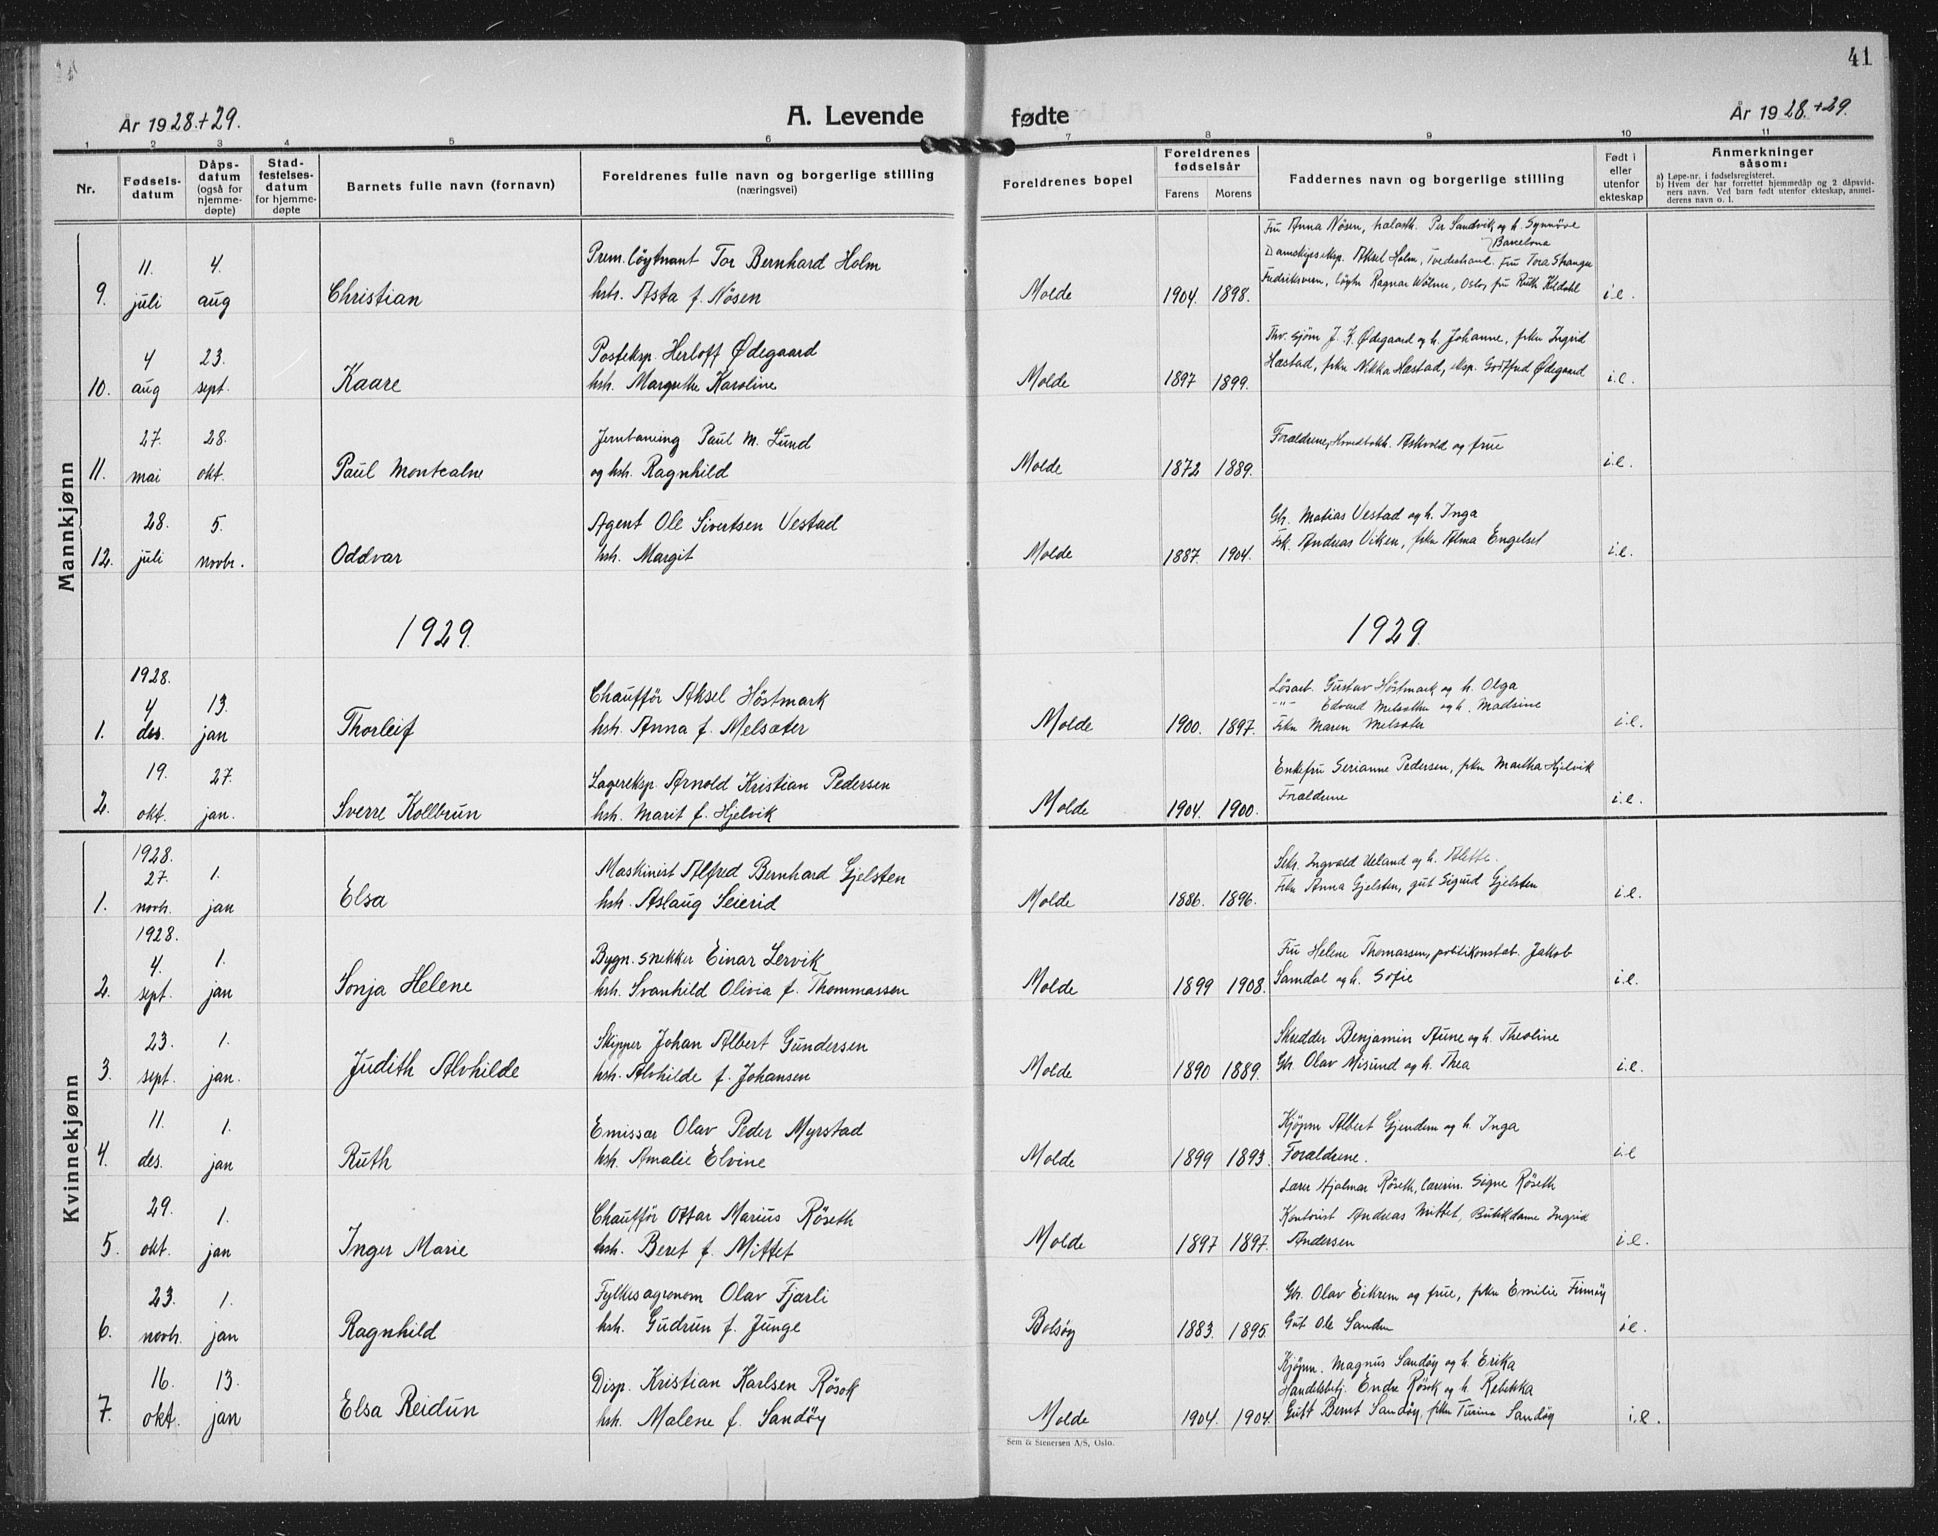 41
År 1928.+29.
A. Levende fødte
År 1928.+29.
1 2 3 4 5 6 7 8 9 10 11
Nr.
Fødsels-
datum
Dåps-
datum
(også for
hjemme-
døpte)
Stad-
festelses-
datum
for hjemme-
døpte
Barnets fulle navn (fornavn)
Foreldrenes fulle navn og borgerlige stilling
(næringsvei)
Foreldrenes bopel
Foreldrenes
fødselsår
Farens Morens
Faddernes navn og borgerlige stilling
Født i
eller
utenfor
ekteskap
Anmerkninger
såsom:
a) Løpe-nr. i fødselsregisteret.
b) Hvem der har forrettet hjemmedåp og 2 dåpsvid-
ners navn. Ved barn født utenfor ekteskap, anmel-
derens navn o. l.
Mannkjønn
9. 11. juli 4. aug Christian
Prem.løytnant Tor Bernhard Holm
hst. Asta f. Nösen
Molde 1904. 1898.
Fru Anna Nösen, Per Sandvik og h. Synnøve
Barcelona
Aksel Holm, Fru Tora Stranger
Ragnar Oslo, fru Ruth
i.e.
10. 4 aug 23. sept. Kaare
Posteksp. Herloff Ødegaard
hst. Margrethe Karoline
Molde 1897 1899.
J. K. Ødegaard og h. Johanne, frkn Ingrid
Hæstad, frkn Nikka Hæstad, eksp. Godtfred Ødegaard
i.e.
11. 27. mai 28. okt. Paul Montcalne
Jernbaneing Paul M. Lund
og hst. Ragnhild
Molde 1872 1889.
Forældrene, Askvold og frue
i.e.
12. 28. juli 5. novbr. Oddvar
Agent Ole Sivertsen Vestad
hst. Margit
Molde 1887. 1904.
Gb. Matias Vestad og h. Inga
Fsk. Andreas Viken, frkn Alma Engelset
i.e.
1929. 1929.
1. 1928. 4 des. 13. jan Thorleif
Chauffør Aksel Höstmark
hst. Anna f. Melsæter
Molde 1900. 1897.
Løsarb. Gustav Höstmark og h. Olga
-"- Edvard Melsæther og h. Madsine
Frkn Maren Melsæter
i.e.
2. 19. okt. 27. jan. Sverre Kollbrun
Lagereksp Arnold Kristian Pedersen
hst. Marit f. Hjelvik
Molde 1904. 1900.
Enkefru Serianne Pedersen, frkn Martha Hjelvik
Forældrene
i.e.
Kvinnekjønn
1. 1928. 27. novbr. 1. jan Elsa
Maskinist Alfred Bernhard Gjelsten
hst. Aslaug Seierid
Molde 1886. 1896.
Ingvald Ueland og h. Alette.
Frkn Anna Gjelsten, gut Sigurd Gjelsten
i.e.
2. 1928. 4. sept. 1. jan Sonja Helene
Bygn. snekker Einar Lervik
hst. Svanhild Olivia f. Thommassen
Molde 1899 1908.
Fru Helene Thomassen, politikonstab. Jakob
Samdal og h. Sofie
i.e.
3. 23. sept. 1. jan. Judith Alvhilde
Skipper Johan Albert Gundersen
hst. Alvhilde f. Johansen
Molde 1890 1889.
Skredder Benjamin Aune og h. Theoline
Gb. Olav Misund og h. Thea
i.e.
4. 11. des. 1. jan Ruth
Emissær Olav Peder Myrstad
hst. Amalie Elvine
Molde 1899 1893.
Kjøpm Albert Gjendem og h. Inga
Forældrene.
i.e
5. 29. okt. 1. jan Inger Marie
Chauffør Ottar Marius Röseth
hst. Beret f. Mittet
Molde 1897 1897.
Lærer Hjalmar Röseth, Lærerin. Signe Röseth
Kontorist Andreas Mittet, Butikdame Ingrid
Andersen
i.e.
6. 23. novbr. 1. jan Ragnhild
Fylkesagronom Olav Fjærli
hst. Gudrun f. Junge
Bolsøy 1883. 1895.
Gb. Olav Eikrem og frue, frkn Emilie Finnöy
Gut Ole Sanden
i.e.
7. 16. okt. 13. jan Elsa Reidun
Disp. Kristian Karlsen Rösok
hst. Malene f. Sandöy
Molde 1904. 1904.
Kjøpm. Magnus Sandöy og h. Erika
Handelsbetj. Endre Rösok og h. Rebekka
Gutt Bernt Sandöy, frkn Turina Sandöy
i.e.
Sem & Stenersen A/S, Oslo.